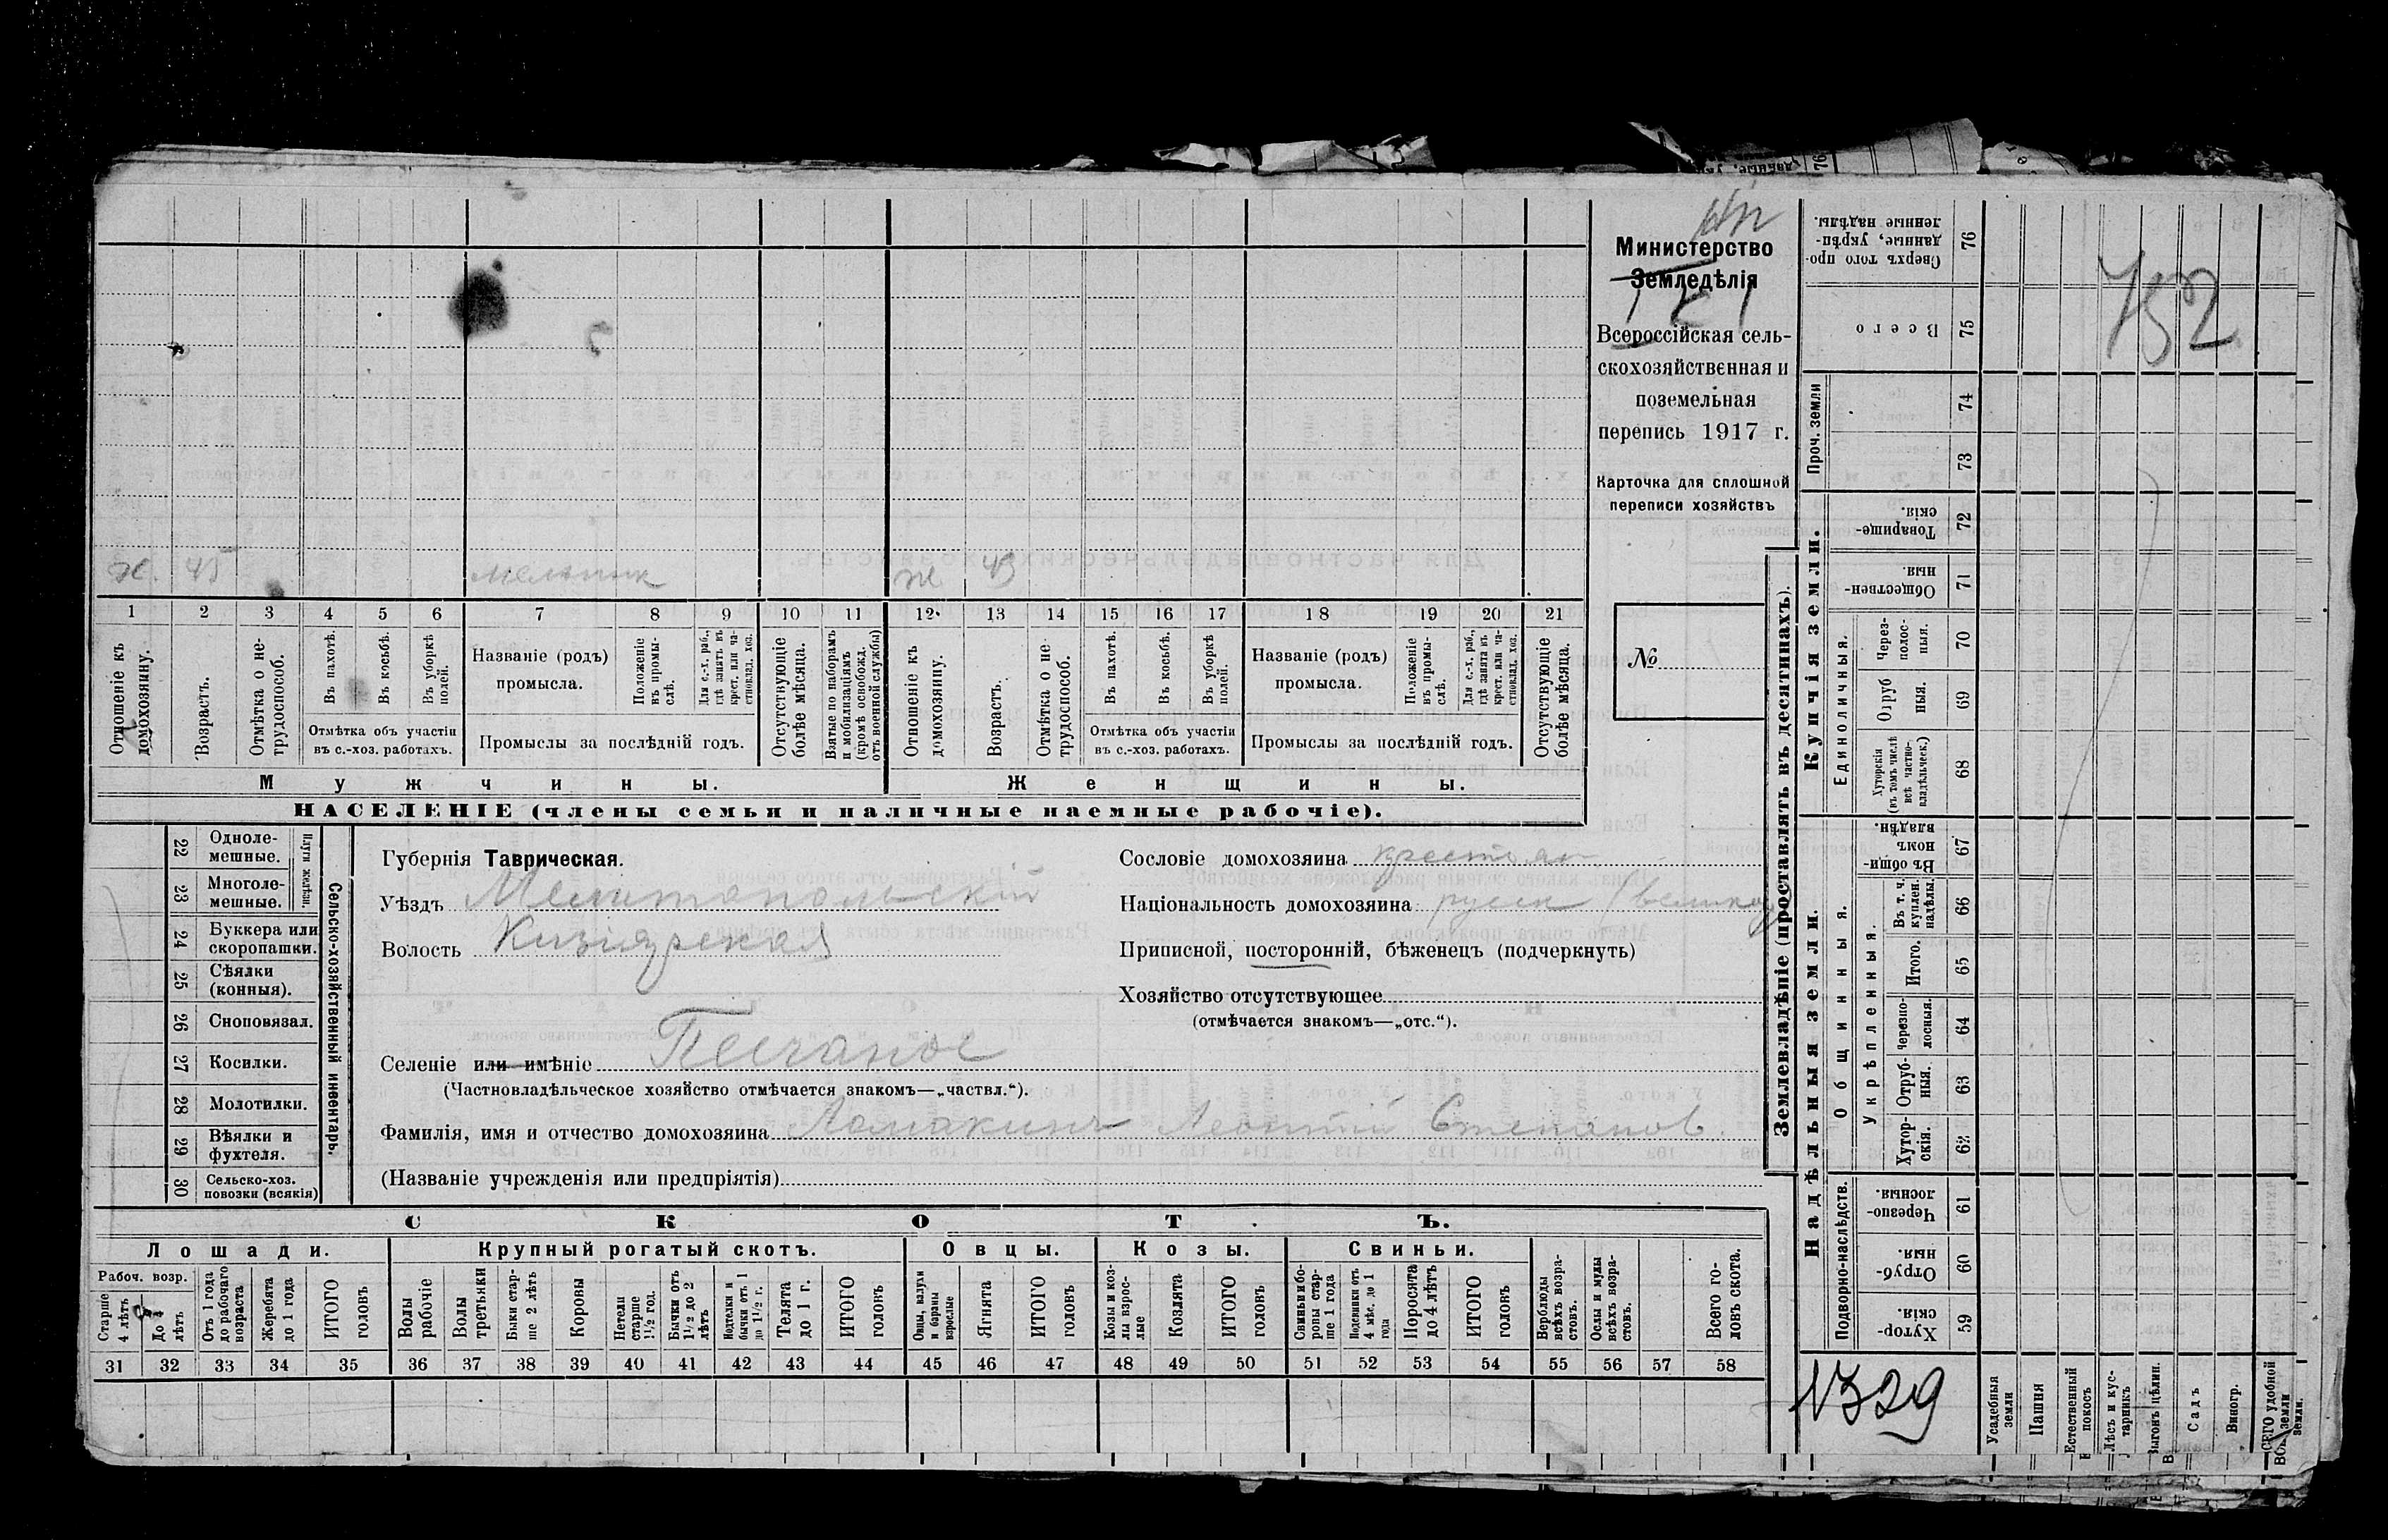 Министерство
Земледѣлія
Всероссійская сель-
скохозяйственная и
поземельная
перепись 1917 г.
Карточка для сплошной
переписи хозяйствъ
№
752
х. 45 мельник
же 43
1 2 3 4 5 6 7 8 9 10 11 12 13 14 15 16 17 18 19 20 21
Отношеніе къ домохозяину.
Возрастъ.
Отмѣтка о не-трудоспособ.
Въ пахотѣ.
Въ косьбѣ.
Въ уборкѣ полей.
Отмѣтка объ участіи
въ с.-хоз. работахъ.
Названіе (родъ)
промысла.
Положеніе въ промы-слѣ.
Для с.-х. раб., гдѣ занятъ въ крест. или ча-стновлад. хоз.
Промыслы за послѣдній годъ.
Отсутствующіе болѣе мѣсяца.
Взятые по наборамъ и мобилизаціямъ (кромѣ освобожд. отъ военной службы)
Отношеніе къ домохозяину.
Возрастъ.
Отмѣтка о не-трудоспособ.
Въ пахотѣ.
Въ косьбѣ.
Въ уборкѣ полей.
Отмѣтка объ участіи
въ с.-хоз. работахъ.
Названіе (родъ)
промысла.
Положеніе въ промы-слѣ.
Для с.-х. раб., гдѣ занята въ крест. или ча-стновлад. хоз.
Промыслы за послѣдній годъ.
Отсутствующіе болѣе мѣсяца.
Мужчины.
Женщины.
НАСЕЛЕНІЕ (члены семьи и наличные наемные рабочіе).
22 Одноле-мешные.
23 Многоле-мешные.
Плуги желѣзн.
24 Буккера или скоропашки.
25 Сѣялки (конныя).
26 Сноповязал.
27 Косилки.
28 Молотилки.
29 Вѣялки и фухтеля.
30 Сельско-хоз. повозки (всякія)
Сельско-хозяйственный инвентарь.
Губернія Таврическая.
Уѣздъ Мелитопольскій
Волость Кизіярская
Селеніе или имѣніе Песчаное
(Частновладѣльческое хозяйство отмѣчается знакомъ—„частвл.“).
Фамилія, имя и отчество домохозяина Ломакинъ Леонтій Степанов.
(Названіе учрежденія или предпріятія)
Сословіе домохозяина крестьян
Національность домохозяина русск (великор
Приписной, посторонній, бѣженецъ (подчеркнуть)
Хозяйство отсутствующее
(отмѣчается знакомъ—„отс.“).
СКОТЪ.
Лошади.
Крупный рогатый скотъ.
Овцы.
Козы.
Свиньи.
Рабоч. возр.
Старше 4 лѣтъ
До 4 лѣтъ
Отъ 1 года до рабочаго возраста
Жеребята до 1 года
ИТОГО головъ
Волы рабочіе
Волы третьяки
Быки стар-ше 2 лѣтъ
Коровы
Нетели старше 1½ год.
Бычки отъ 1½ до 2 лѣтъ
Подтелки и бычки отъ 1 до 1½ г.
Телята до 1 г.
ИТОГО головъ
Овцы, валухи и бараны взрослые
Ягнята
ИТОГО головъ
Козы и коз-лы взрос-лые
Козлята
ИТОГО головъ
Свиньи и бо-ровы стар-ше 1 года
Подсвинки отъ 4 мѣс. до 1 года
Поросята до 4 лѣтъ
ИТОГО головъ
Верблюды всѣхъ возра-стовъ.
Ослы и мулы всѣхъ возра-стовъ.
Всего го-ловъ скота.
31 32 33 34 35 36 37 38 39 40 41 42 43 44 45 46 47 48 49 50 51 52 53 54 55 56 57 58
Землевладѣніе (проставлять въ десятинахъ).
Купчія земли.
Надѣльныя земли.
Сверхъ того про-данные, укрѣп-ленные надѣлы. 76
Всего 75
Проч. земли
74
73
Товарище-скія. 72
Обществен-ныя. 71
Единоличныя.
Через-полос-ныя. 70
Отруб-ныя. 69
Хуторскія (въ томъ числѣ всѣ частно-владѣльческ.) 68
Общинныя.
Въ общин-номъ владѣн. 67
Укрѣпленныя.
Въ т. ч. куплен. надѣлы. 66
Итого. 65
Черезпо-лосныя. 64
Отруб-ныя. 63
Хутор-скія. 62
Подворно-наслѣдств.
Черезпо-лосныя. 61
Отруб-ныя. 60
Хутор-скія. 59
1329
Усадебныя земли
Пашня
Естественный покосъ
Лѣсъ и кус-тарникъ
Выгонъ цѣлин.
Садъ
Виногр.